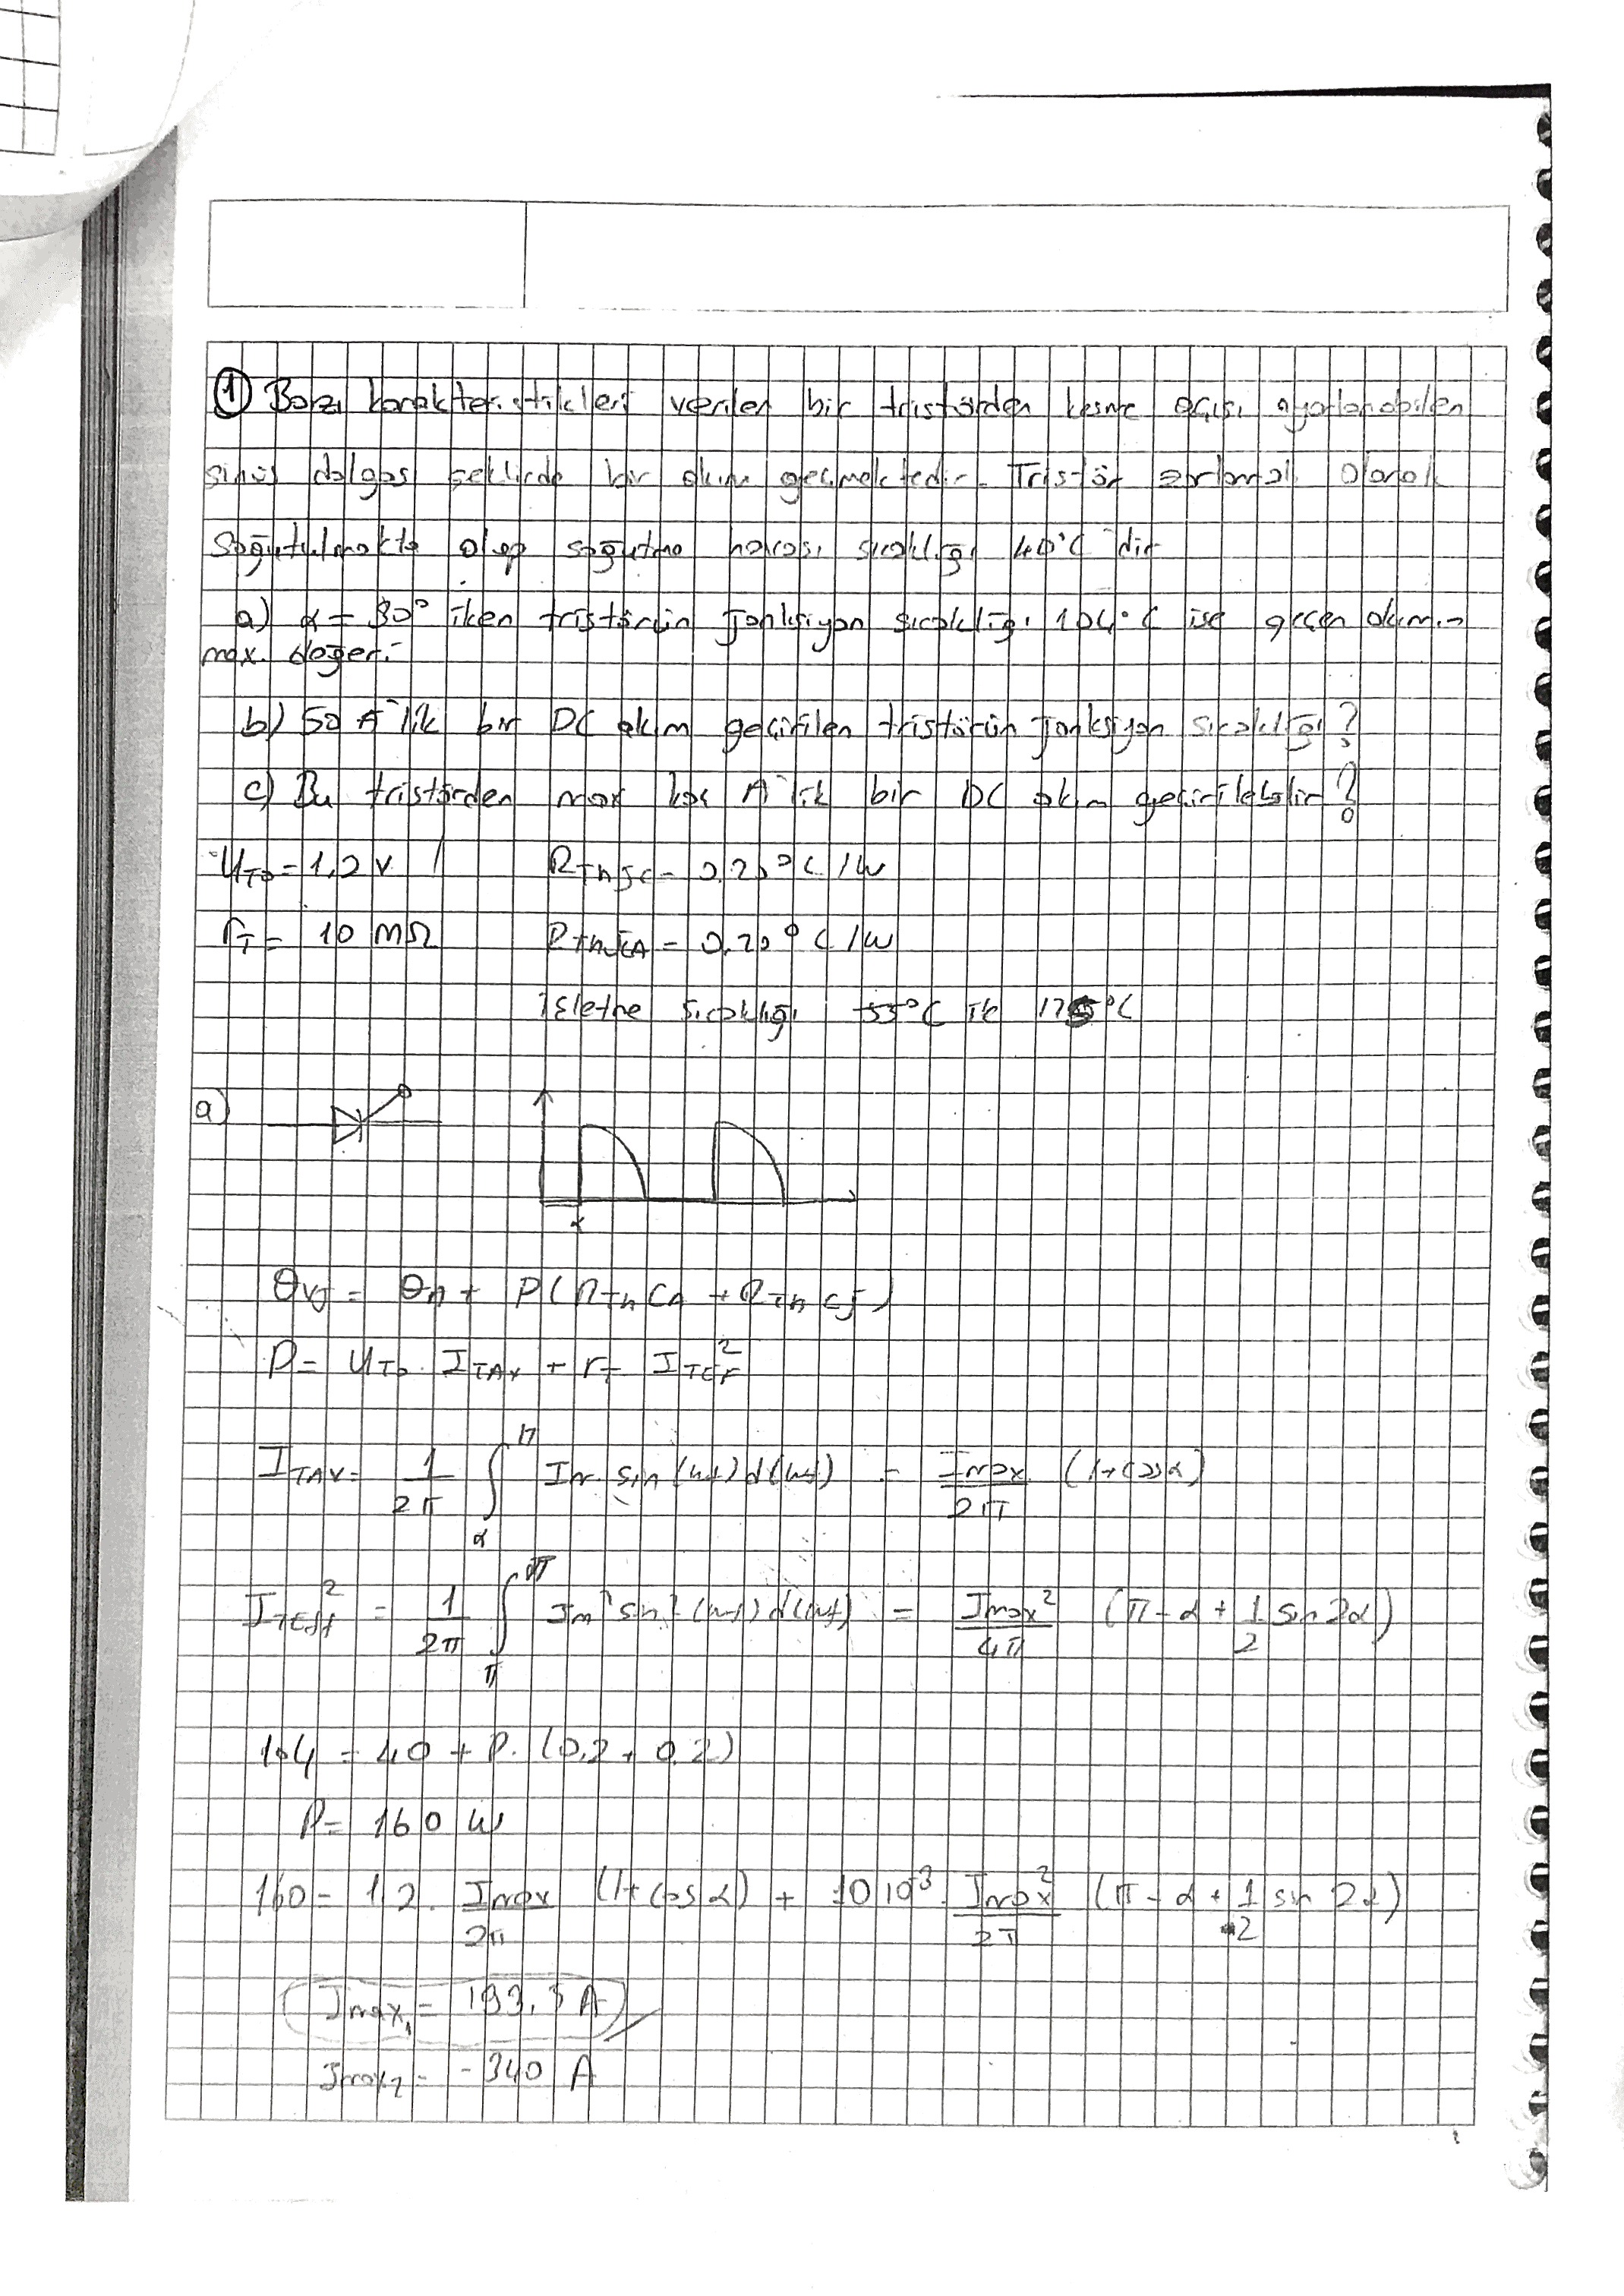 ① Bazı karakteristikleri verilen bir tristörden kesme açısı ayarlanabilen
sinüs dalgası şeklinde bir akım geçmektedir. Tristör zorlamalı olarak
soğutulmakta olup soğutma havası sıcaklığı 40°C dir
a) α = 30° iken tristörün jonksiyon sıcaklığı 104°C ise geçen akımın
max. değeri
b) 50 A'lik bir DC akım geçirilen tristörün jonksiyon sıcaklığı?
c) Bu tristörden max kaç A'lik bir DC akım geçirilebilir?
U_T0 = 1,2 V R_ThJC = 0,20°C/W
r_T = 10 mΩ R_ThCA = 0,20°C/W
işletme sıcaklığı -55°C ile 175°C
a)
α
θ_VJ = θ_A + P(R_ThCA + R_ThCJ)
P = U_T0 . I_TAV + r_T I_TEF²
I_TAV = 1/2π ∫_α^π Im sin(wt) d(wt) = Imax/2π (1+cosα)
I_TEff² = 1/2π ∫_π^π Im² sin²(wt) d(wt) = Imax²/4π (π - α + 1/2 sin2α)
104 = 40 + P. (0,2 + 0,2)
P = 160 W
160 = 1,2 . Imax/2π (1+cosα) + 10 10⁻³ . Imax²/2π (π - α + 1/2 sin 2α)
Imax₁ = 193,5 A
Imax₂ = -340 A